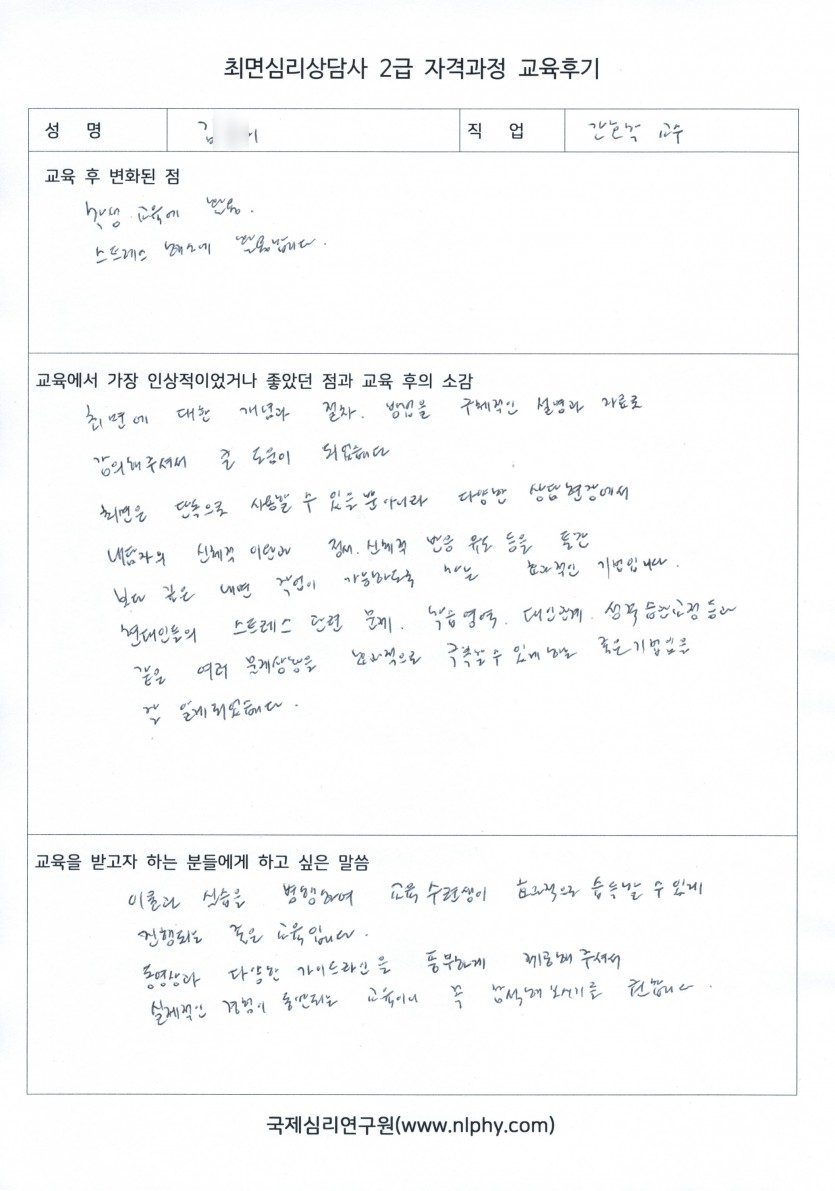 최면심리상담사 2급 자격과정 교육후기
성 명 김
직 업 간호학 교수
교육 후 변화된 점
학생 교육에 반영.
스트레스 해소에 활용합니다.
교육에서 가장 인상적이었거나 좋았던 점과 교육 후의 소감
최면에 대한 개념과 절차. 방법을 구체적인 설명과 자료로
강의해주셔서 큰 도움이 되었습니다
최면은 단독으로 사용할 수 있을 뿐 아니라 다양한 상담현장에서
내담자의 신체적 이완과 정서. 신체적 반응 유도 등을 통한
보다 깊은 내면 작업이 가능하도록 하는 효과적인 기법입니다.
현대인들의 스트레스 관련 문제. 학습영역. 대인관계. 생활습관교정 등과
같은 여러 문제상황을 효과적으로 구축할 수 있게 하는 좋은 기법임을
잘 알게 되었습니다.
교육을 받고자 하는 분들에게 하고 싶은 말씀
이론과 실습을 병행하여 교육 수련생이 효과적으로 습득할 수 있게
진행되는 좋은 교육입니다.
동영상과 다양한 가이드라인을 풍부하게 제공해 주셔서
실제적인 경험이 동반되는 교육이니 꼭 참석해보시기를 권합니다.
국제심리연구원(www.nlphy.com)